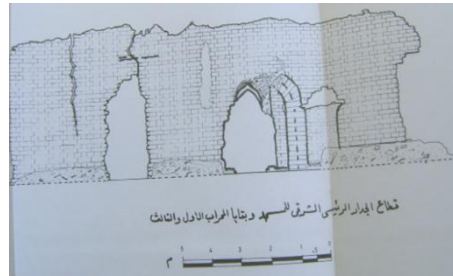 قطاع الجدار الرئيسى الشرقى وبقايا المحراب الاول والثالث
5 4 3 2 1 .5 0
م